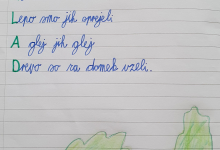 Lepo smo jih sprejeli
A glej jih glej
Drevo so za domek vzeli.